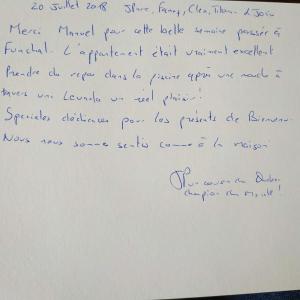 20 Juillet 2018 JPierre, Fanny, Cléa, Titouan &
Merci Manuel pour cette belle semaine passée à
Funchal. L'appartement était vraiment excellent
Prendre du repos dans la piscine après une marche à
travers une Levada un réel plaisir!
Spéciales dédicaces pour les présents de Bienvenu
Nous nous somme sentis comme à la maison
champion du monde!